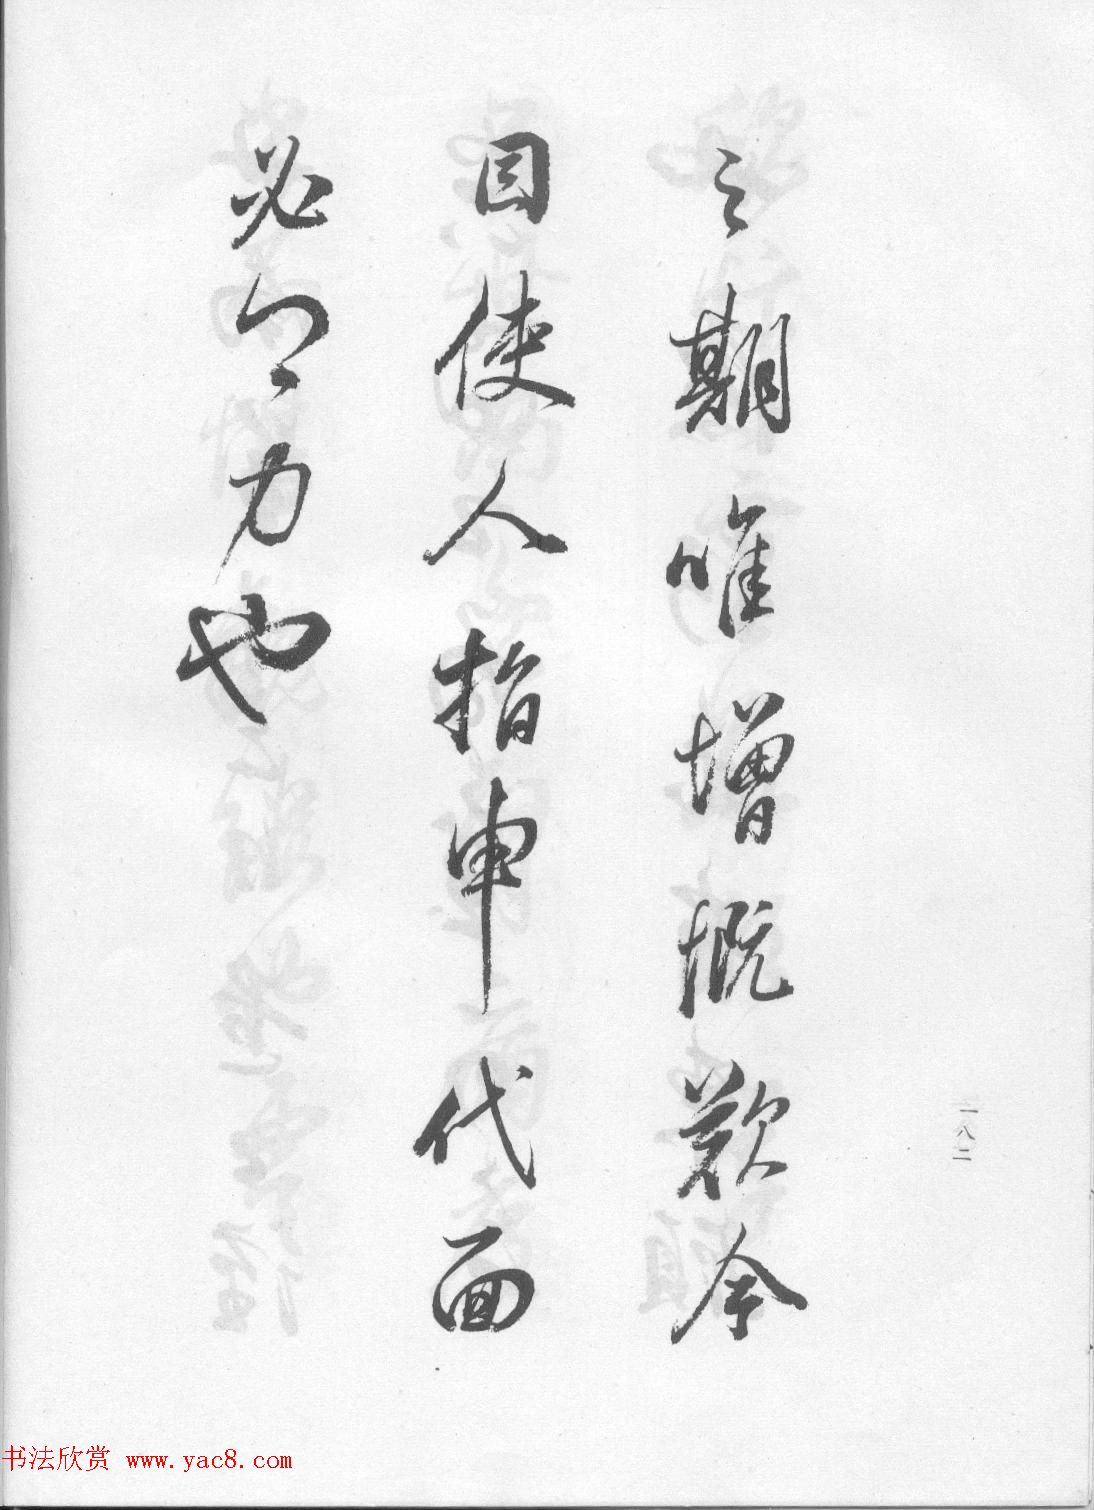 之期唯增慨歎今
因使人指申代面
必力也
一八二
书法欣赏 www.yac8.com